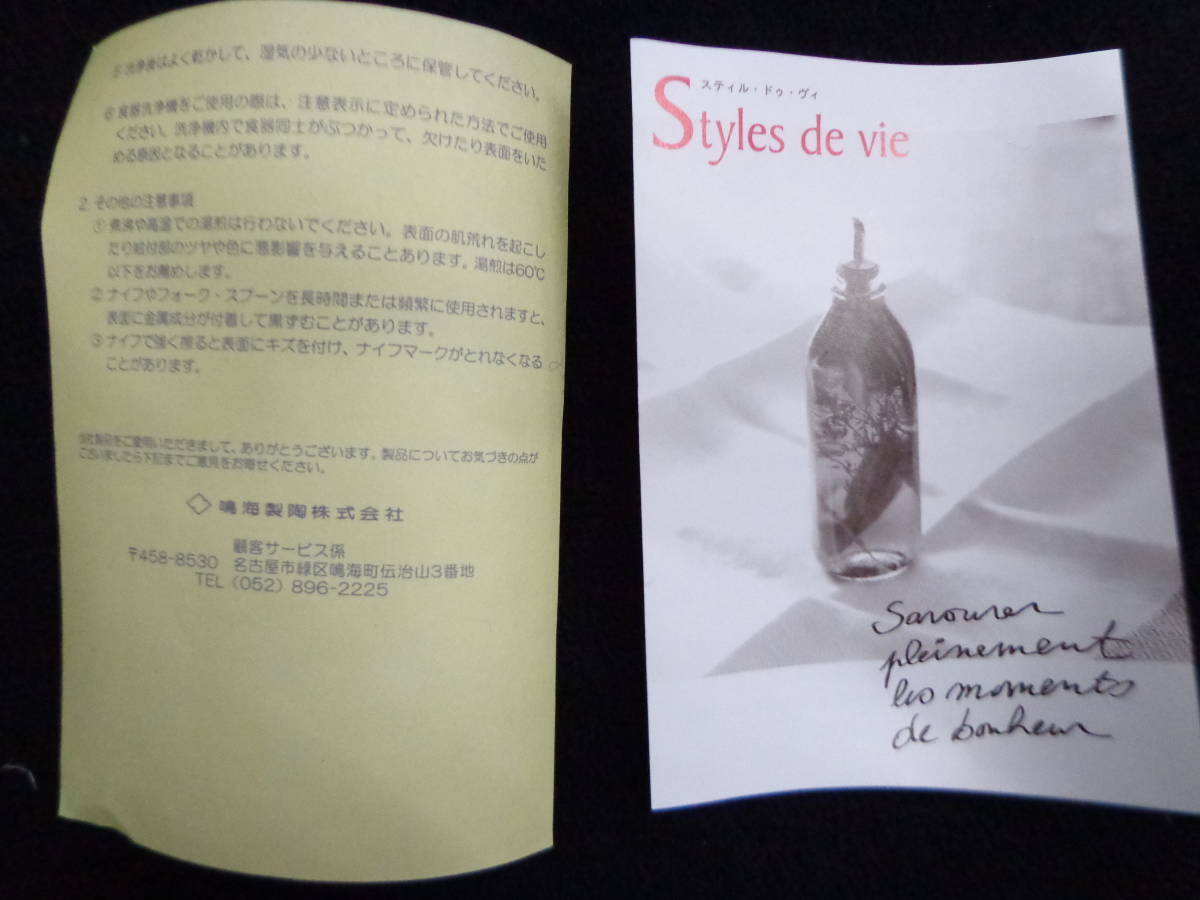 ⑤ 洗浄後はよく乾かして、湿気の少ないところに保管してください。
⑥ 食器洗浄機をご使用の際は、注意表示に定められた方法でご使用
ください。洗浄機内で食器同士がぶつかって、欠けたり表面をいた
める原因となることがあります。
2. その他の注意事項
① 煮沸や高温での湯煎は行わないでください。表面の肌荒れを起こし
たり絵付部のツヤや色に悪影響を与えることあります。湯煎は60℃
以下をお薦めします。
② ナイフやフォーク・スプーンを長時間または頻繁に使用されますと、
表面に金属成分が付着して黒ずむことがあります。
③ ナイフで強く擦ると表面にキズを付け、ナイフマークがとれなくなる
ことがあります。
当社製品をご愛用いただきまして、ありがとうございます。製品についてお気づきの点が
ございましたら下記までご意見をお寄せください。
鳴海製陶株式会社
顧客サービス係
〒458-8530 名古屋市緑区鳴海町伝治山3番地
TEL (052) 896-2225
スティル・ドゥ・ヴィ
Styles de vie
Savourer
pleinement
les moments
de bonheur